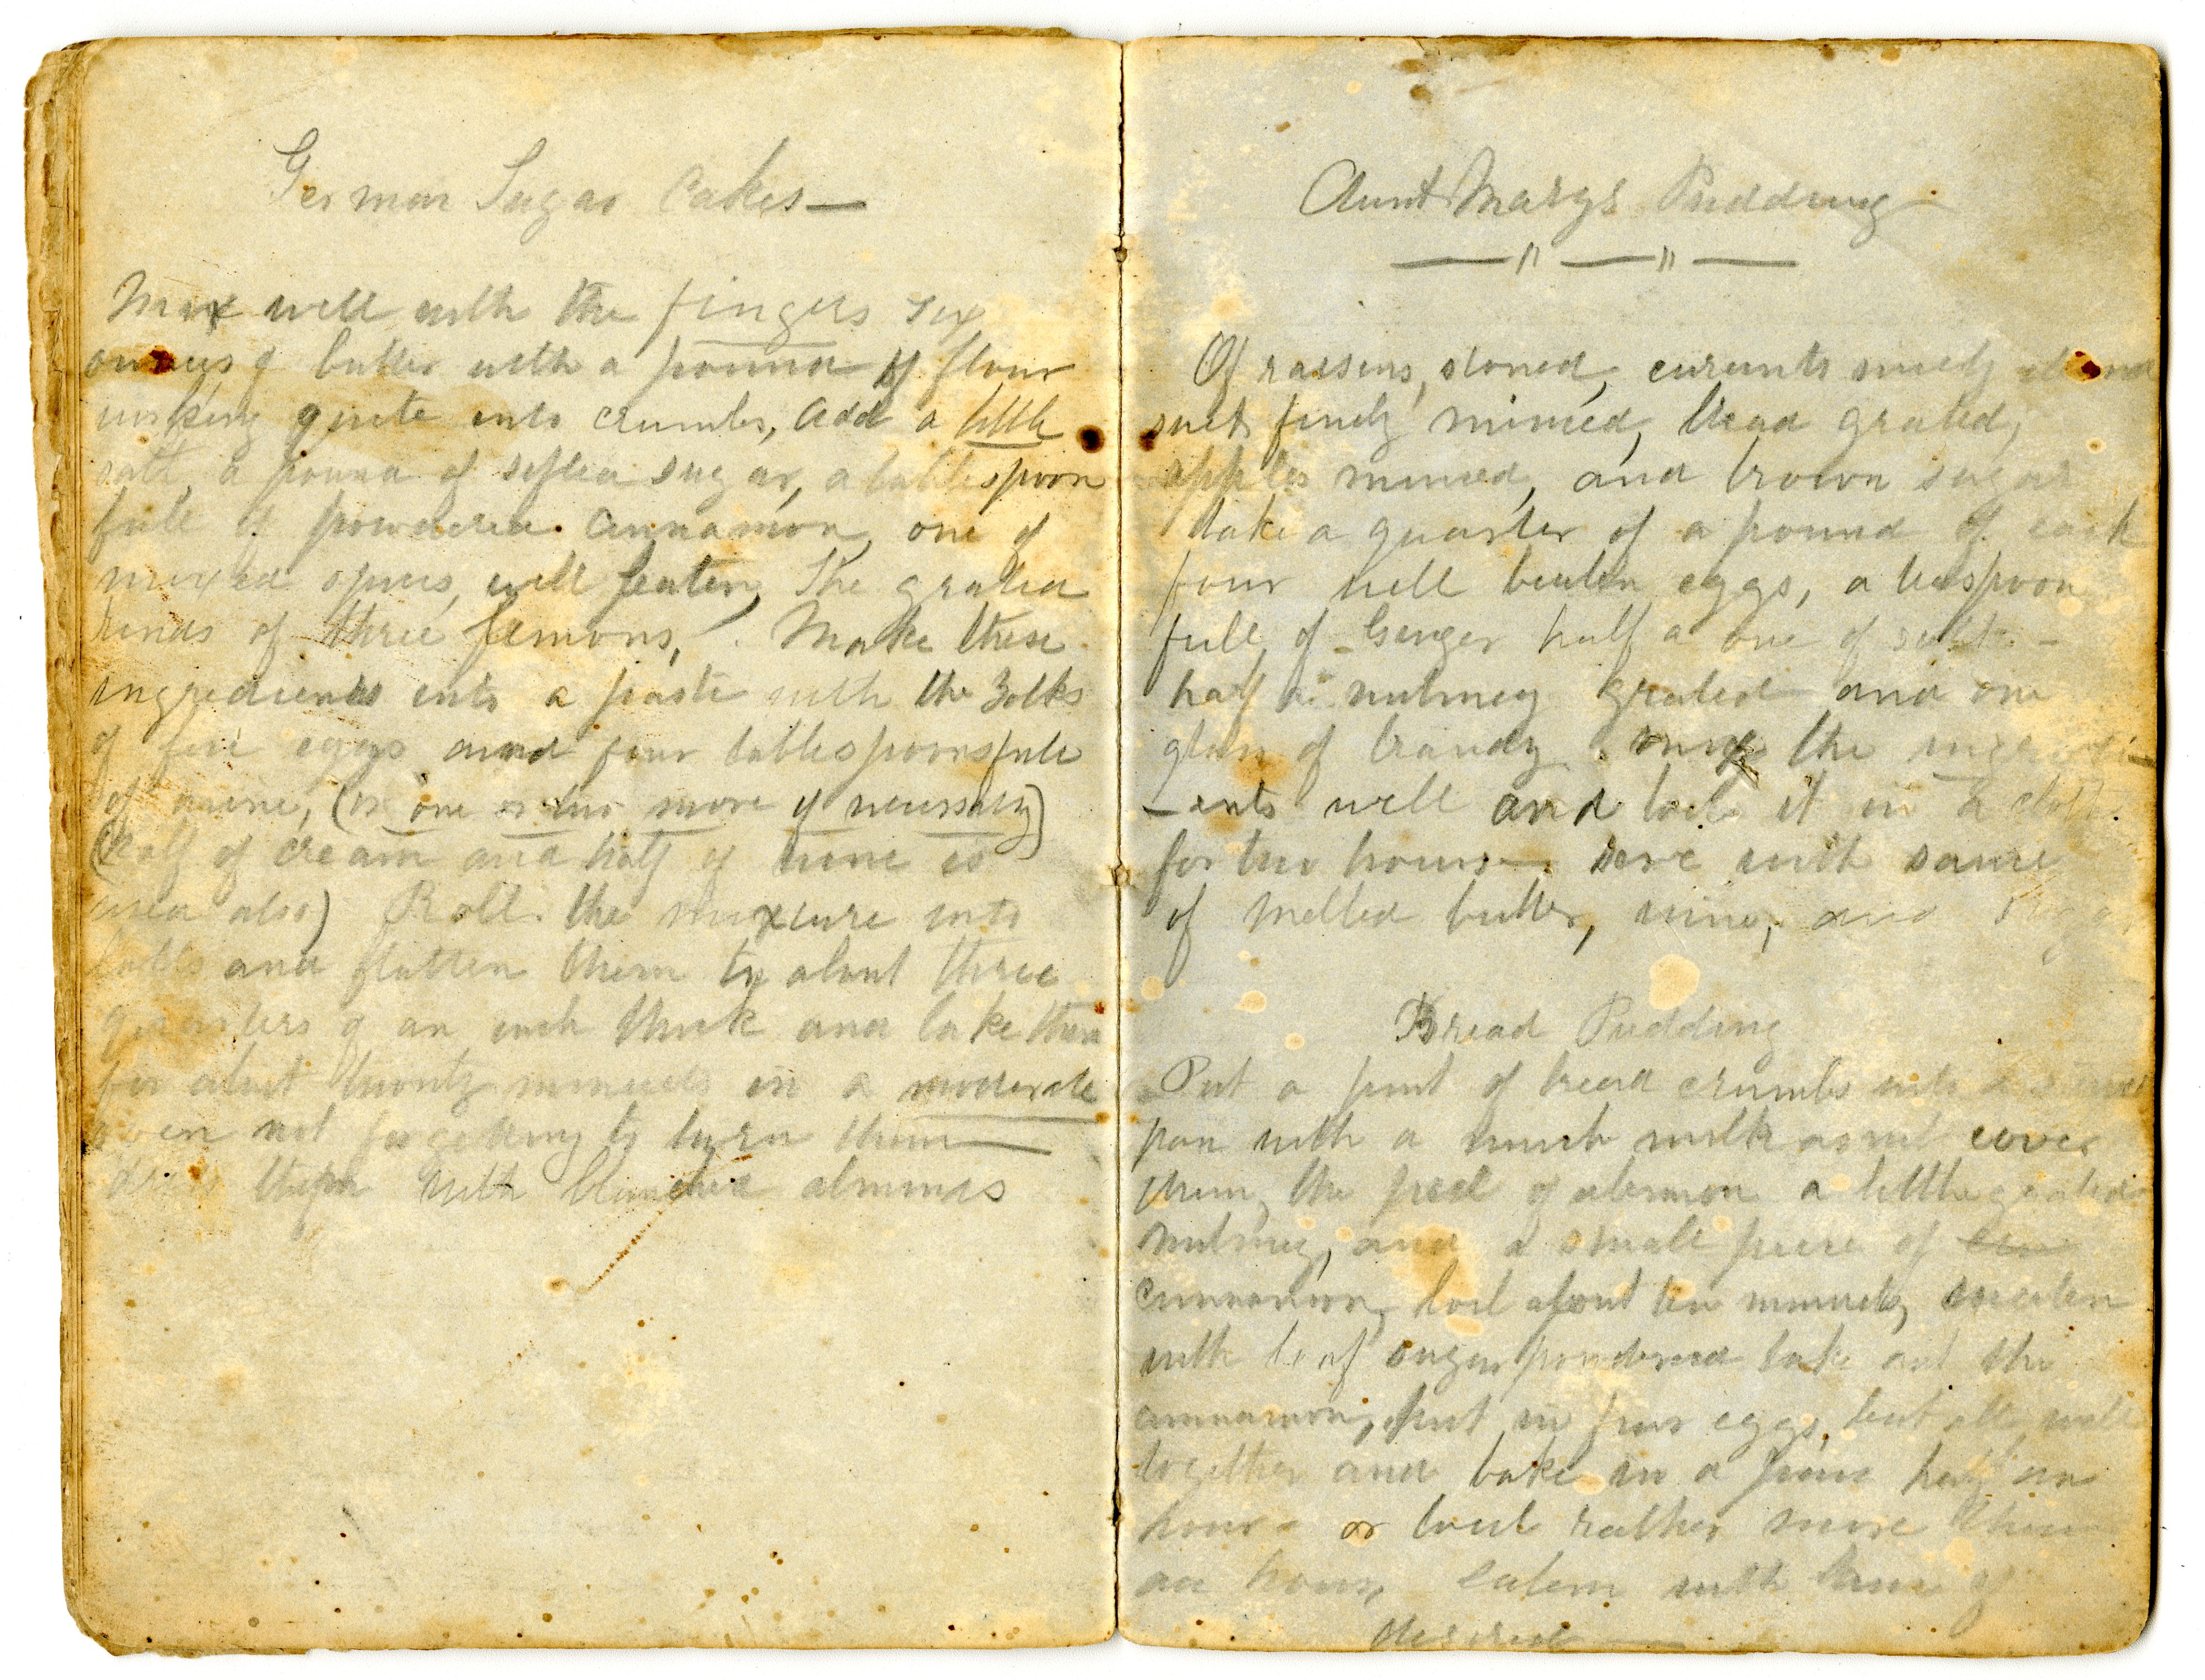 German Sugar Cakes—
Mix well with the fingers six
ounces of butter with a pound of flour
working quite into crumbs, add a little
salt, a pound of sifted sugar, a tablespoon
full of powdered cinnamon, one of
mixed spices, well beaten, The grated
rinds of three lemons, . Make these
ingredients into a paste with the Yolks
of five eggs and four tablespoonsfull
of wine, (or one or two more if necessary)
(half of cream and half of wine is
used also) Roll the mixture into
balls and flatten them to about three
quarters of an inch thick and bake them
for about twenty minutes in a moderate
oven not forgetting to turn them —
dress them with blanched almonds
Aunt Marys Pudding
— " — " —
Of rassins, stoned, curunts nicely
suet finely minced, bread grated,
apples minced, and brown sugar
take a quarter of a pound of each
four well beaten eggs, a teaspoon
full of Ginger half a one of salt -
half a nutmeg grated and one
glass of brandy . mix the ingredi-
-ents well and boil it in a cloth
for two hours—. serve with sauce
of melted butter, wine, and sugar
Bread Pudding
Put a pint of bread crumbs into a
pan with a much milk as will cover
them, the peel of a lemon a little grated
nutmeg, and a small piece of cin
cinnamon, boil about ten minutes, sweeten
with loaf sugar powdered take out the
cinnamon, put in four eggs, beat all well
together and bake in a half an
hour - or boil rather more than
an hour, eatem with if
desired —